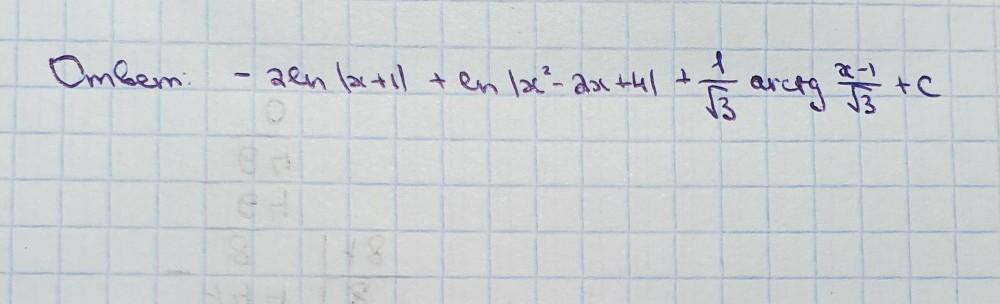 Ответ: - 2ln |x+1| + ln |x² - 2x + 4| + 1/√3 arctg x-1/√3 + C